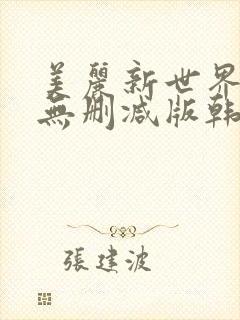 美麗新世界
無刪減版韩
張建波